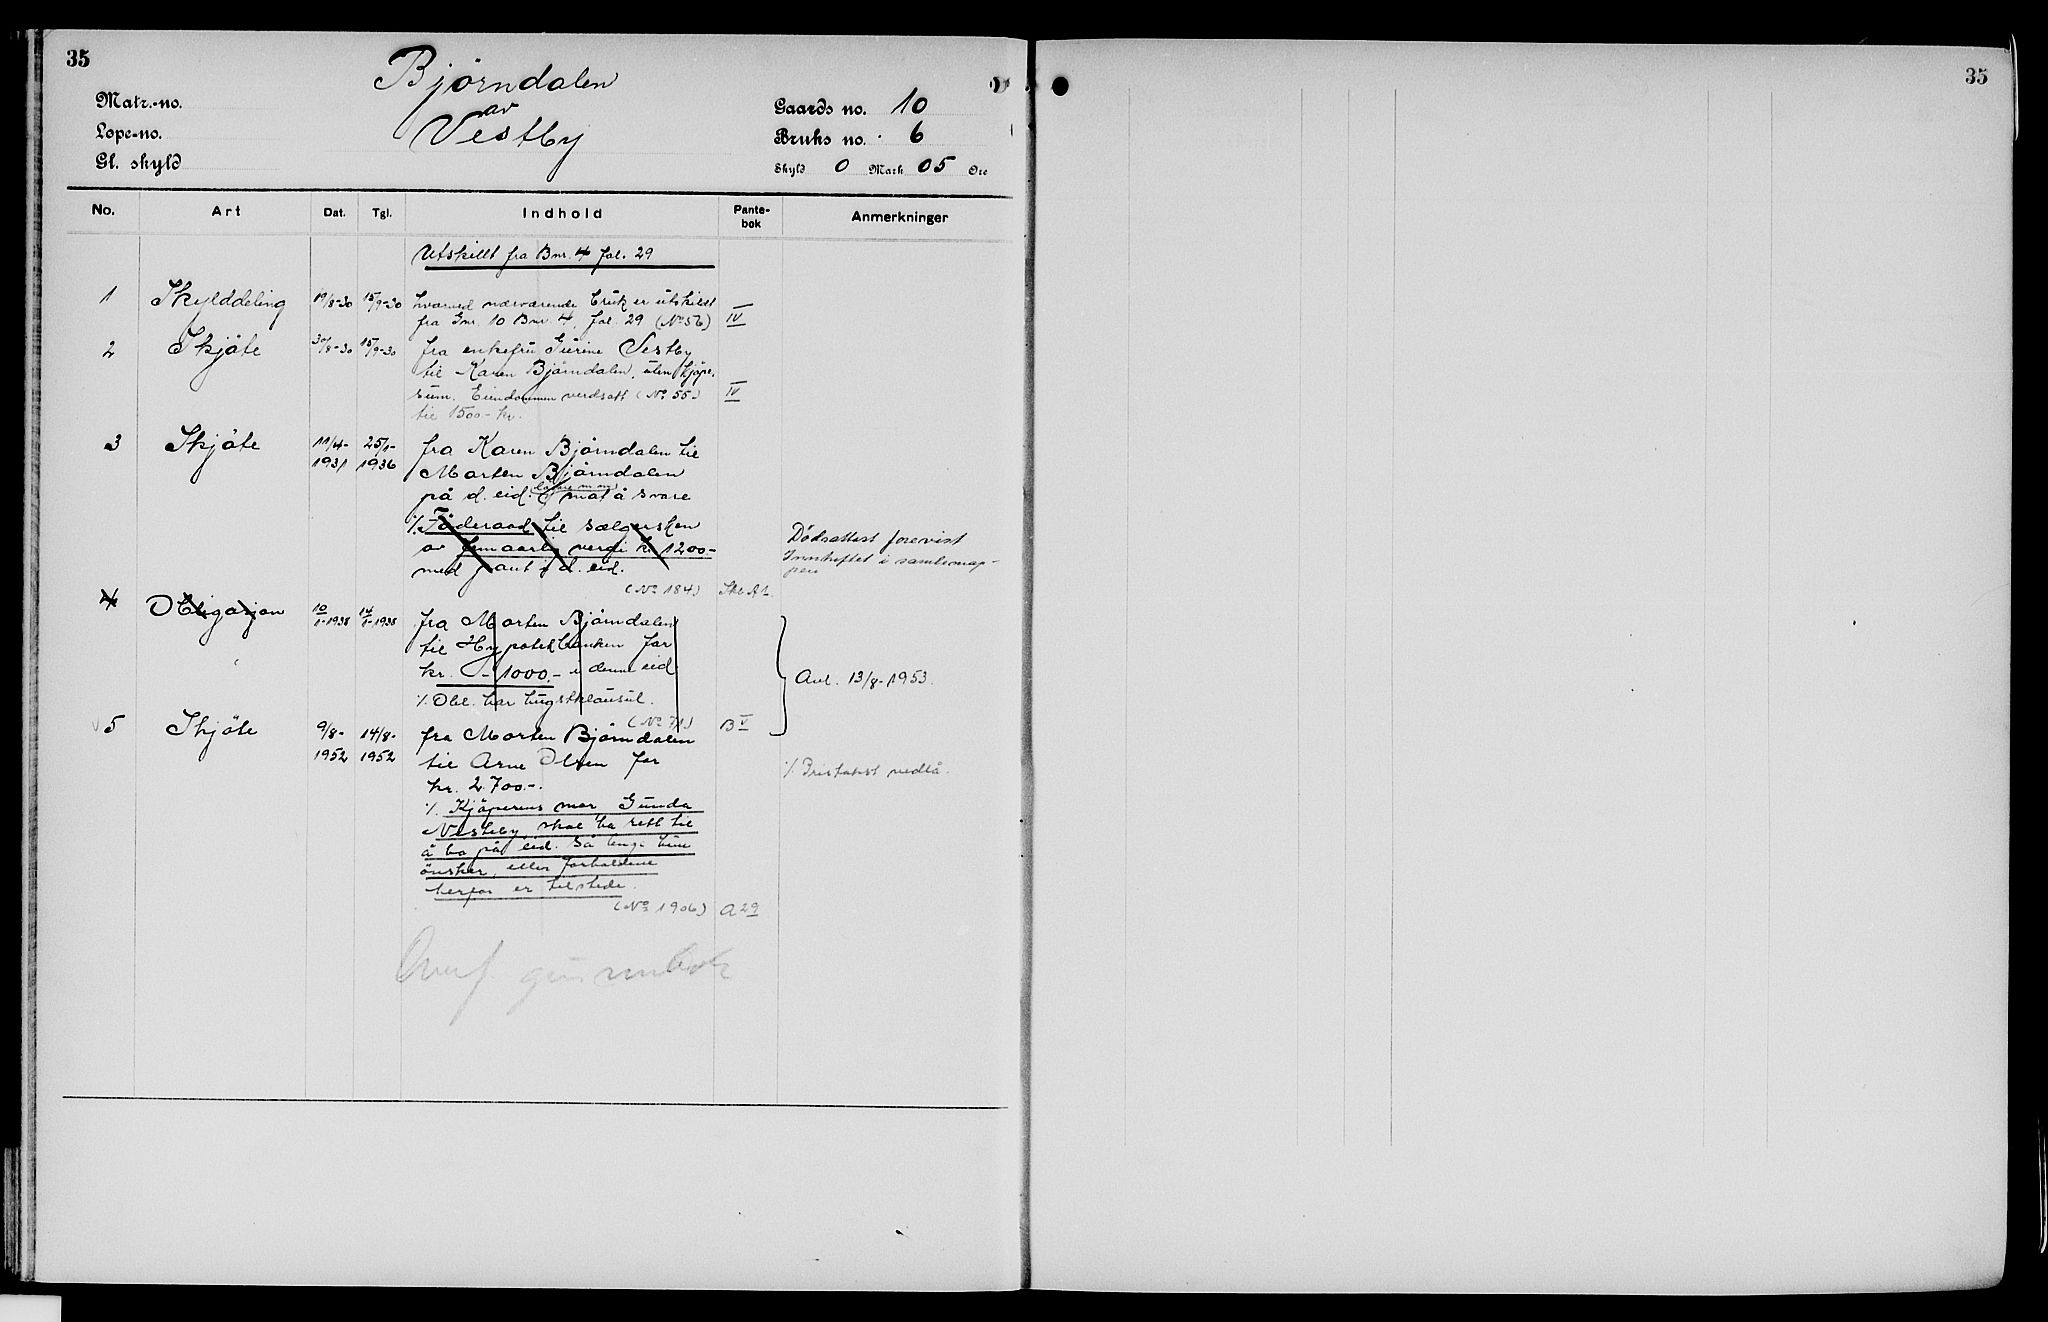 35
Bjørndalen
av
Vestby
Matr.-no.
Lope-no.
Gl. skyld
Gaards no. 10
Bruks no. 6
Skyld 0 Mark 05 Øre
No. Art Dat. Tgl. Indhold Pante-bok Anmerkninger
Utskillt fra Bnr. 4 fol. 29
1 Skylddeling 19/8-30 15/9-30 hvorved nærværende bruk er utskillt
fra Gnr. 10 Bnr. 4, fol. 29 (No 56) IV
2 Skjøte 30/8-30 15/9-30 fra enkefru Gurine Vestby
til Karen Bjørndalen, uten kjøpe-
sum. Eiendommen verdsatt (No 55) IV
til 1500- kr.
3 Skjøte 11/4-1931 25/1-1936 fra Karen Bjørndalen til
Morten Bjørndalen
på d. eid. mot å svare
%. Føderaad til sælgersken
av femaarlig verdi kr 1200-
med pant i d. eid.
(No 184)
Dødsattest forevist
Innheftet i samlemap-
pen
4 Obligasjon 10/1-1938 14/1-1938 fra Morten Bjørndalen
til Hypotekbanken for
kr. 1000.- i denne eid.
%. Obl. har hugstklausul.
(No 71) B V
Avl. 13/8-1953.
5 Skjøte 9/8-1952 14/8-1952 fra Morten Bjørndalen
til Arne Olsen for
kr. 2.700.-.
%. Kjøperens mor, Gunda
Vestby, skal ha rett til
å bo på eid. så lenge hun
ønsker, eller forholdene
herfor er tilstede.
(No 1906) A 29
%. Pristakst vedlå.
Overf. grunnbok
35